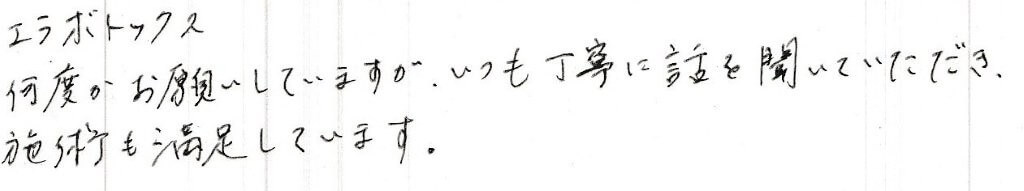 エラボトックス
何度かお願いしていますが、いつも丁寧に話を聞いていただき、
施術も満足しています。